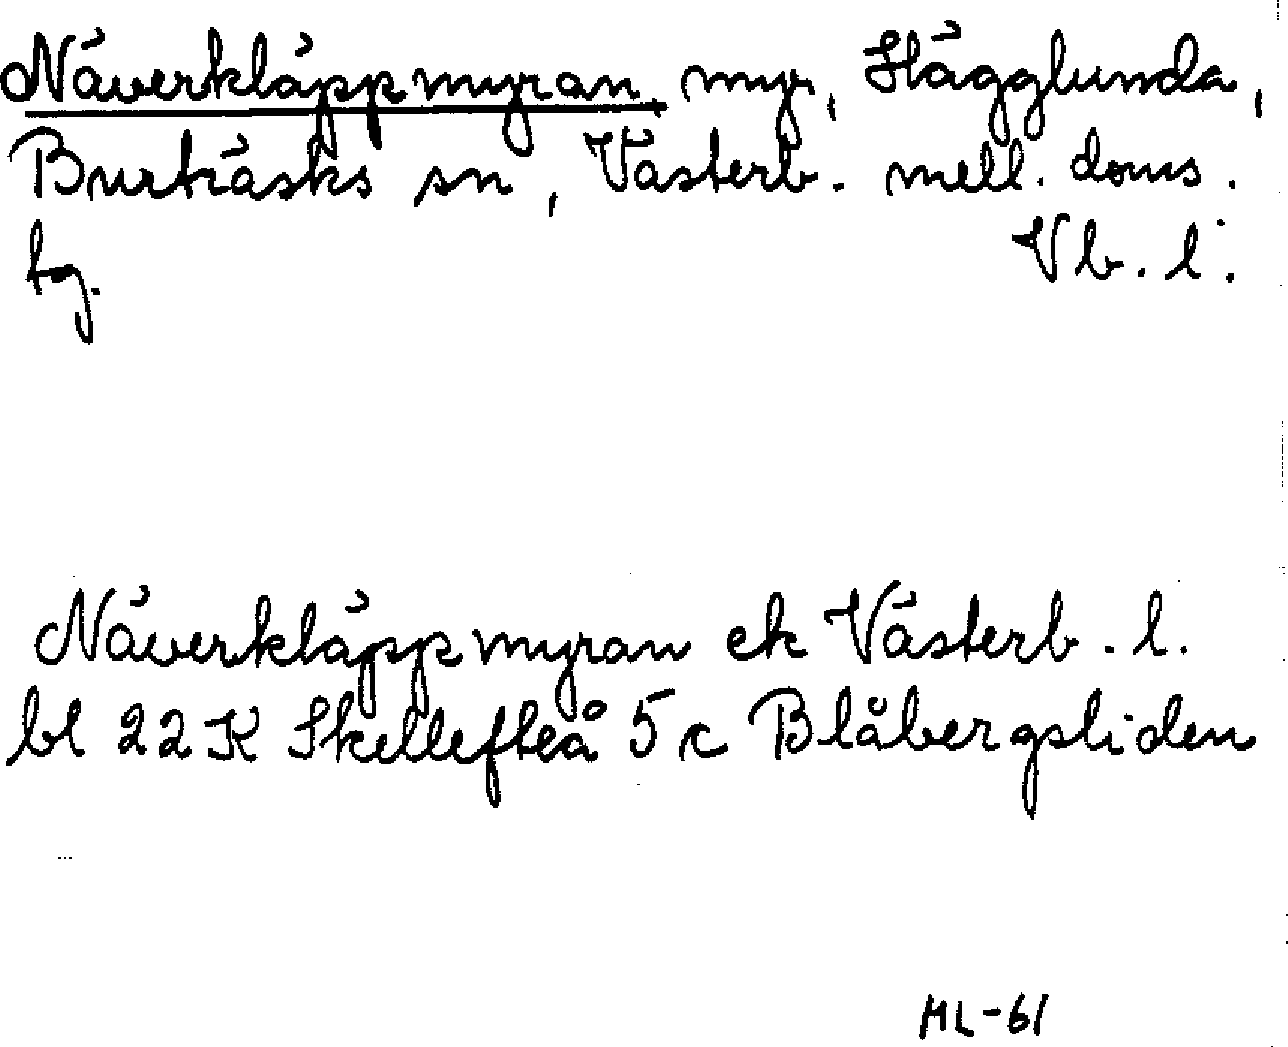 Näverkläppmyran, myr, Hägglunda,
Burträsks sn, Västerb. mell. doms.
tg. Vb. l.
Näverkläppmyran ek Västerb. l.
bl 22 K Skellefteå 5 c Blåbergsliden
ML-61